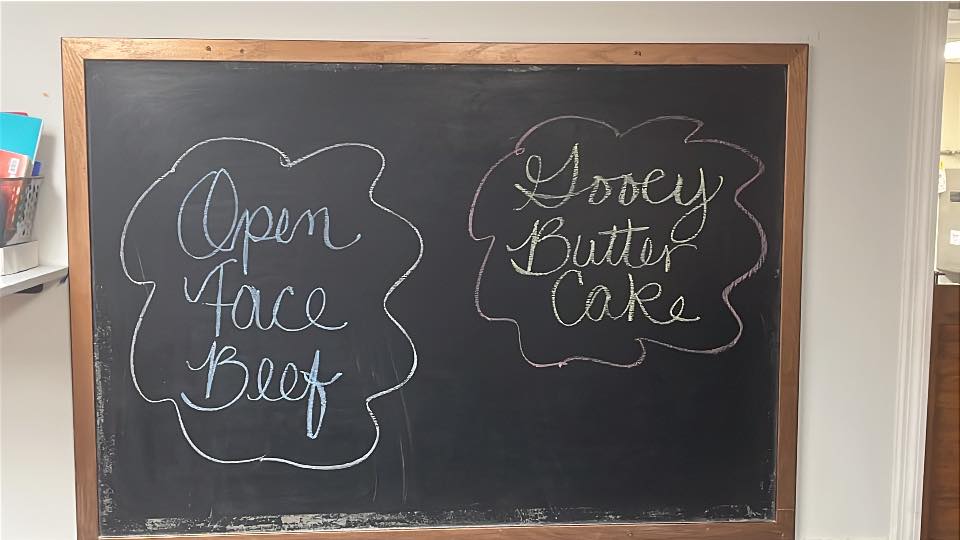 Open
Face
Beef
Gooey
Butter
Cake